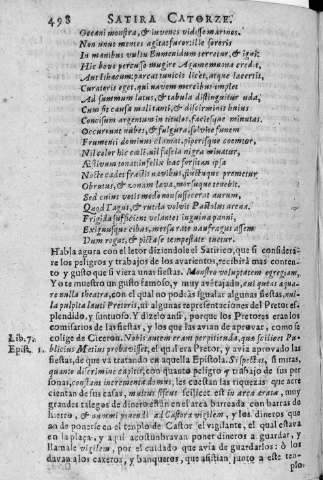 498 SATIRA CATORZE.
Oceani monstra, & iuvenes vidisse marinos.
Non unus mentes agitat furor: ille sororis
In manibus vultu Eumenidum terretur, & igni:
Hic bove percusso mugire Agamemnona credit,
Aut Ithacum: parcat tunicis licet, atque lacernis,
Curatoris eget, qui navem mercibus implet
Ad summum latus, & tabula distinguitur unda,
Cum sit causa mali tanti, & discriminis huius
Concisum argentum in titulos, faciesque minutas.
Occurrunt nubes, & fulgura, solvite funem
Frumenti dominus clamat, piperisque coemtor,
Nil color hic cæli, nil fascia nigra minatur,
Æstivum tonat: infelix hac forsitan ipsa
Nocte cadet fractis navibus, fluctuque premetur
Obrutus, & zonam lava, morsuque tenebit.
Sed cuius votis modo non suffecerat aurum,
Quod Tagus, & rutila volvit Pactolus arena.
Frigida sufficient velantes inguina panni,
Exiguusque cibus, mersa rate naufragus assem
Dum rogat, & picta se tempestate tuetur.
Habla agora con el letor diziendole el Satirico, que si considerá-
re los peligros y trabajos de los avarientos, recibirá mas conten-
to y gusto que si viera unas fiestas. Monstro voluptatem egregiam,
Yo te muestro un gusto famoso, y muy aventajado, cui queas aqua-
re nulla theatra, con el qual no podràs igualar algunas fiestas, nul-
la pulpita lauti Pretoris, ni algunas representaciones del Pretor es-
plendido, y suntuoso. Y dizelo ansi, porque los Pretores eran los
comisarios de las fiestas, y los que las avian de aprovar, como se
Lib. 7. colige de Ciceron. Nobis autem eram perpetienda, que scilicet Pu-
Epist. 1. blicius Metius probavisset, el qual era Pretor, y avia aprovado las
fiestas, de que va tratando en aquella Epistola. Si spectes, si miras,
quanto discrimine capitis, con quanto peligro y trabajo de sus per-
sonas, constent incrementa domus, les cuestan las riquezas que acre
cientan de sus casas, multus fiscus scilicet est in arca ærata, muy
grandes talegos de dinero están en el arca barreada con barras de
hierro, & nummi ponendi ad Castora vigilem, y los dineros que
an de ponerse en el templo de Castor el vigilante, el qual estava
en la plaça, y aqui acostunbravan poner dineros a guardar, y
llamale vigilem, por el cuidado que avia de guardarlos: ò los
davan a los caxeros, y banqueros, que asistian junto a este tem-
plo.